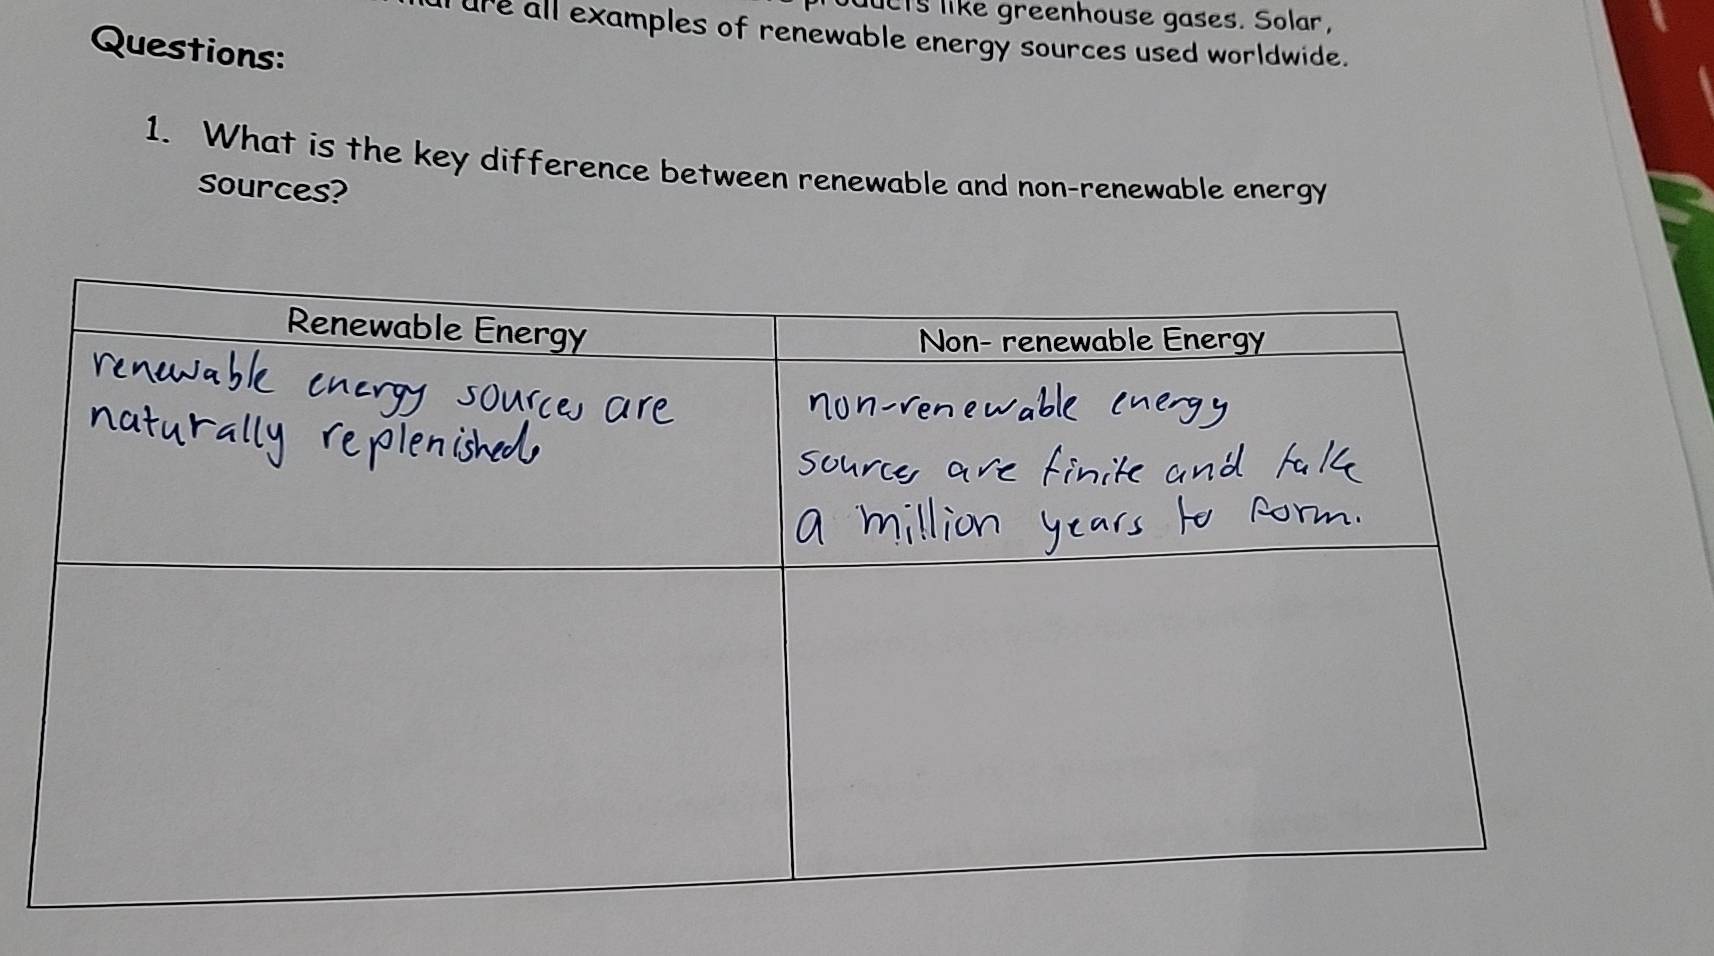 are all examples of renewable energy sources used worldwide.
like greenhouse gases. Solar,
Questions:
1. What is the key difference between renewable and non-renewable energy
sources?
Renewable Energy
Non- renewable Energy
renewable energy sources are
naturally replenished
non-renewable energy
sources are finite and take
a million years to form.